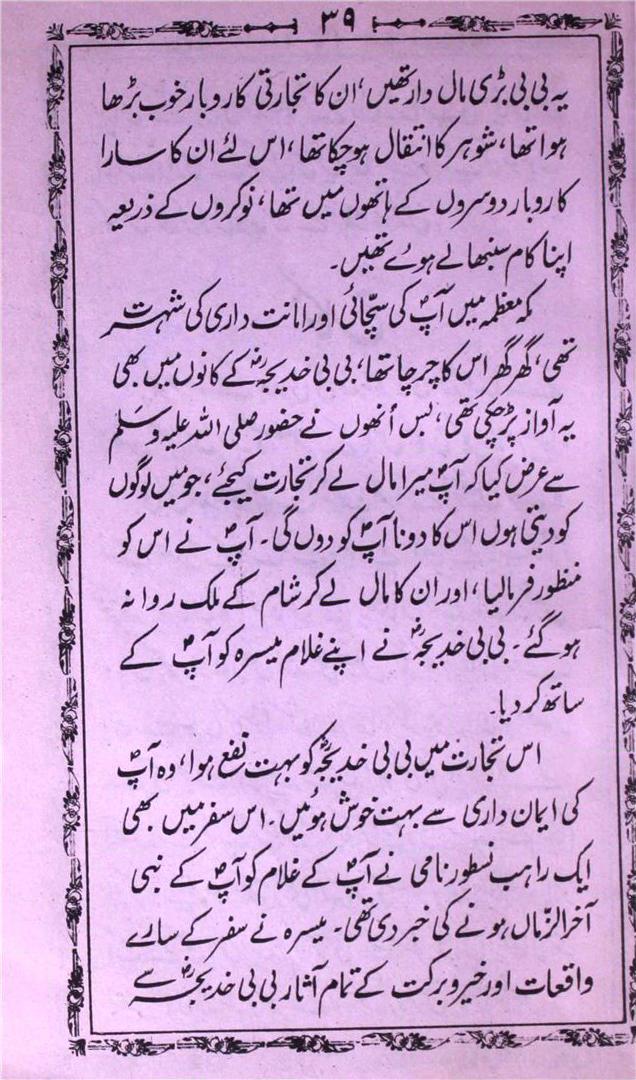 ۳۹
یہ بی بی بڑی مال دار تھیں، ان کا تجارتی کاروبار خوب بڑھا
ہوا تھا، شوہر کا انتقال ہوچکا تھا، اس لئے ان کا سارا
کاروبار دوسروں کے ہاتھوں میں تھا، نوکروں کے ذریعہ
اپنا کام سنبھالے ہوئے تھیں۔
مکہ معظمہ میں آپؐ کی سچّائی اور امانت داری کی شہرت
تھی، گھر گھر اس کا چرچا تھا، بی بی خدیجہؓ کے کانوں میں بھی
یہ آواز پڑچکی تھی، بس اُنھوں نے حضور صلی اللہ علیہ وسلم
سے عرض کیا کہ آپؐ میرا مال لے کر تجارت کیجئے، جو میں لوگوں
کو دیتی ہوں اس کا دونا آپؐ کو دوں گی۔ آپؐ نے اس کو
منظور فرمالیا، اور ان کا مال لے کر شام کے ملک روانہ
ہوگئے۔ بی بی خدیجہؓ نے اپنے غلام میسرہ کو آپؐ کے
ساتھ کردیا۔
اس تجارت میں بی بی خدیجہؓ کو بہت نفع ہوا، وہ آپؐ
کی ایمان داری سے بہت خوش ہوئیں۔ اس سفر میں بھی
ایک راہب نسطور نامی نے آپؐ کے غلام کو آپؐ کے نبی
آخرالزّماں ہونے کی خبر دی تھی۔ میسرہ نے سفر کے سارے
واقعات اور خیر و برکت کے تمام آثار بی بی خدیجہؓ سے